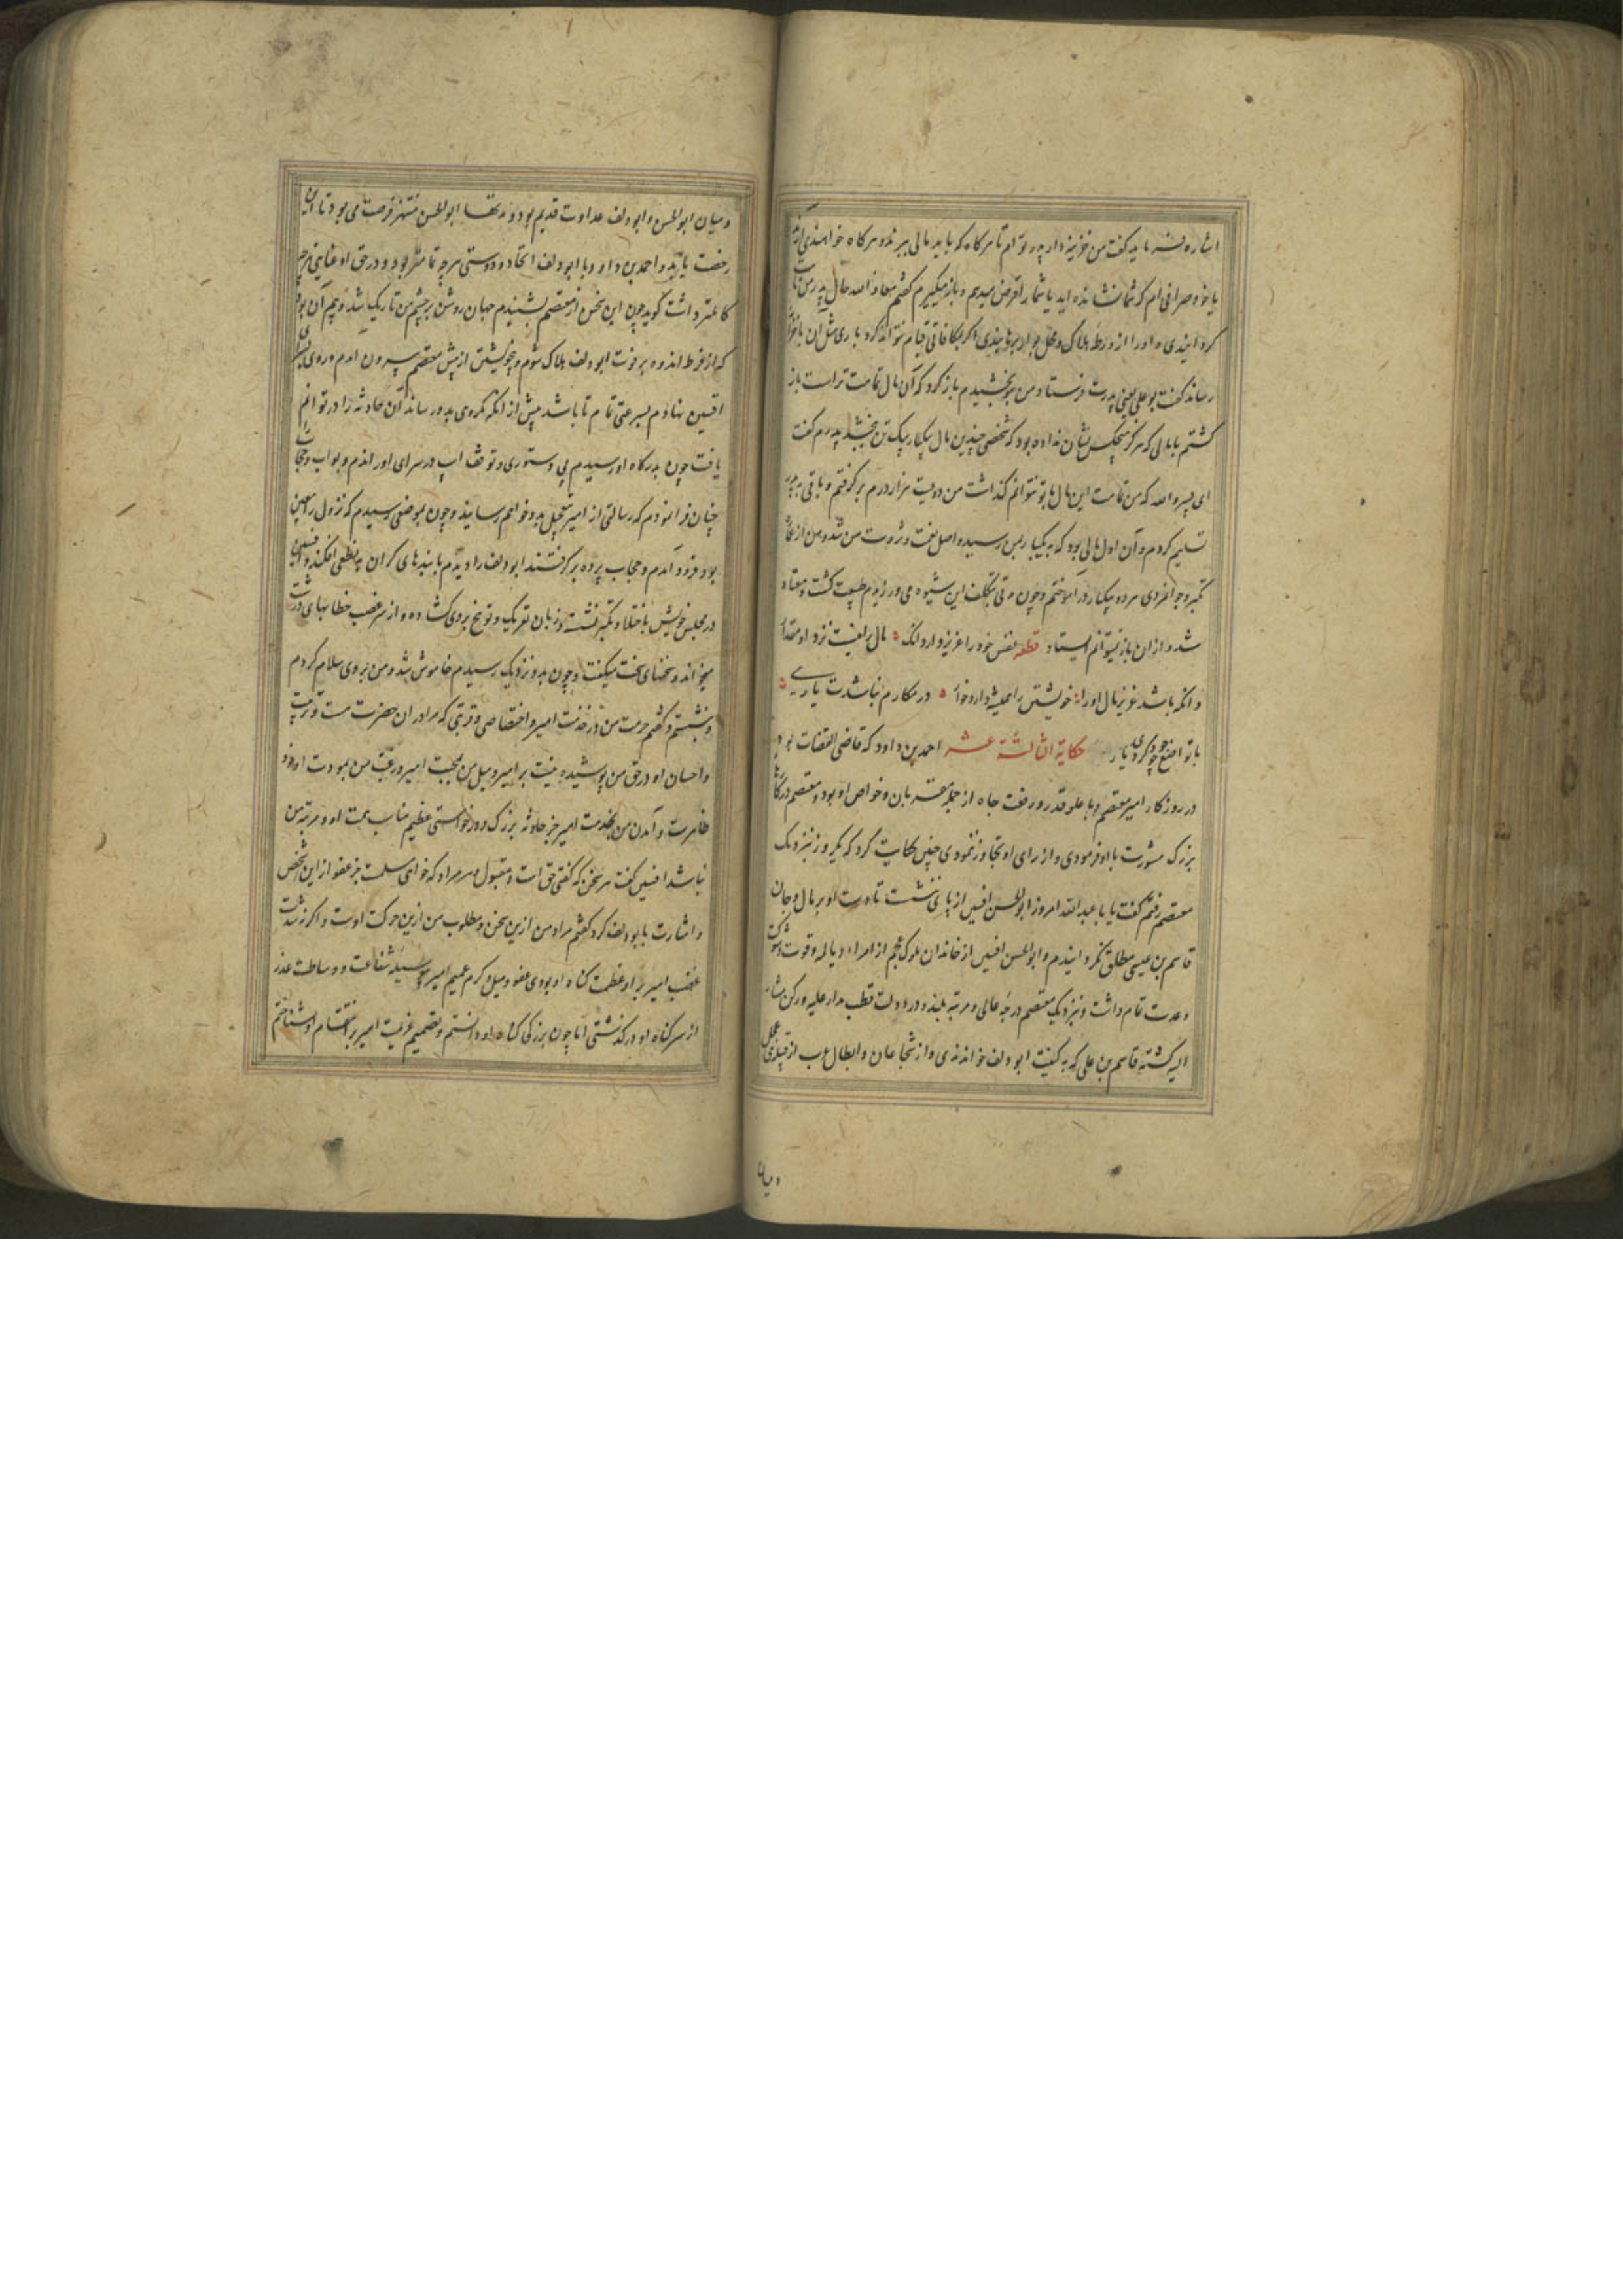 اشاره فرماید گفت من خزینه دار پدر تو ام تا هر کاه که باید مالی ببرند و هر کاه خواهند
یا خود صرافی ام که شما نشانده اید یا شما را قرض میدهم و باز میکیرم گفتم معاذ الله حال پدر من
کردانیدی و او را از ورطه هلاک و محل بوار برهانیدی اکر بمکافاتی قیام نتواند کرد باری مثل آن باخزانه
رساند گفت بو علی یعنی پدرت فرستاد و من بدو بخشیدم باز کرد که آن مال تمامت تراست باز
کشتم با مالی که هرکز هیچکس نشان نداده بود که شخصی چندین مال بیکبار بیک تن بخشد پدرم گفت
ای پسر والله که من تمامت این مال با تو نتوانم گذاشت من دویست هزار درم بر کرفتم و باقی به پدر
تسلیم کردم و آن اول مالی بود که به یکبار بمن رسید و اصل نعمت و ثروت من شد و من از
تکبر و جوانمردی مرد و بیکبار در آموختم و چون مدتی بتکلف این شیوه می ورزیدم طبیعت کشت و معتاد
شد و از ان باز نمیتوانم ایستاد قطعه نفس خود را عزیز دارد آنک مال را نیست نزد او مقدار
وانکه باشد عزیز مال او را خویشتن را همیشه دارد خوار در مکارم نباشدت یاری
با تواضع چو جود کردی یار حکایة الثالثة عشر احمد بن داود که قاضی القضات بود
در روزکار امیر معتصم و با علو قدر و رفعت جاه از جمله مقربان و خواص او بود و معتصم در کارهای
بزرک مشورت با او فرمودی و از رای او تجاوز ننمودی چنین حکایت کرد که یکروز نزدیک
معتصم رفتم گفت یا با عبدالله امروز ابوالحسن افشین از پا ننشست تا دست او بر مال و جان
قاسم بن عیسی مطلق نکردانیدم و ابوالحسن افشین از خاندان ملوک عجم از امراء دیالمه و قوت و شوکت
و عدت تمام داشت و نزدیک معتصم درجه عالی و مرتبه بلند و در دولت قطب مدار علیه و رکن مشار
الیه کشته قاسم بن علی که به کنیت ابو دلف خواندندی و از شجاعان و ابطال عرب از قبیله بنی عجل
و میان
و میان ابوالحسن و ابو دلف عداوت قدیم بود و دفعها ابوالحسن منتهز فرصت می بود تا این
رخصت یابد و احمد بن داود را با ابو دلف اتحاد و دوستی هر چه تمامتر بود و در حق او عنایتی هر چه
کاملتر داشت کوید چون این سخن از معتصم بشنیدم جهان روشن بر چشم من تاریک شد و بیم آن بود
که از فرط اندوه بر فوت ابو دلف هلاک شوم و بیخویشتن از پیش معتصم بیرون امدم و روی بسرای
افشین نهادم بسرعتی تمام تا باشد پیش از انکه مکروهی بدو رساند آن حادثه را در توانم
یافت چون بدرکاه او رسیدم بی دستوری و توقف اسپ در سرای او راندم و بواب و حجاب
چنان فرا نمودم که رسالتی از امیر بتعجیل بدو خواهم رسانید و چون بموضعی رسیدم که نزول را معین
بود فرود آمدم و حجاب پرده بر کرفتند ابو دلف را دیدم با بندهای کران بر نطعی افکنده و افشین
در مجلس خویش باختلا و تکبر نشسته و زبان تعریک و توبیخ بر وی کشاده و از سر غضب خطابهای درشت
میخواند و سخنهای سخت میکفت و چون بدو نزدیک رسیدم خاموش شد و من بر وی سلام کردم
و بنشستم و کفتم حرمت من در خدمت امیر و اختصاص و قربتی که مرا در ان حضرت هست و تربیت
و احسان او در حق من پوشیده نیست بر امیر و میل من بمحبت امیر و رغبت من بمودت او خود
ظاهرست و آمدن من بخدمت امیر جز حادثه بزرک و درخواستی عظیم مناسب همت او و مرتبه من
نباشد افشین کفت هر سخن که کفتی حق است و مقبول و هر مراد که خواهی مسلمست جز عفو از این شخص
و اشارت بابو دلف کرد کفتم مراد من ازین سخن و مطلوب من ازین حرکت اوست و اکر نه شدت
غضب امیر بر او عظمت کناه او بودی عفو و میل و کرم عمیم امیر بوسیله شفاعت و وساطت عذر
از سر کناه او در کذشتی اما چون بزرکی کناه او دانستم و تصمیم عزیمت امیر بر انتقام او شناختم